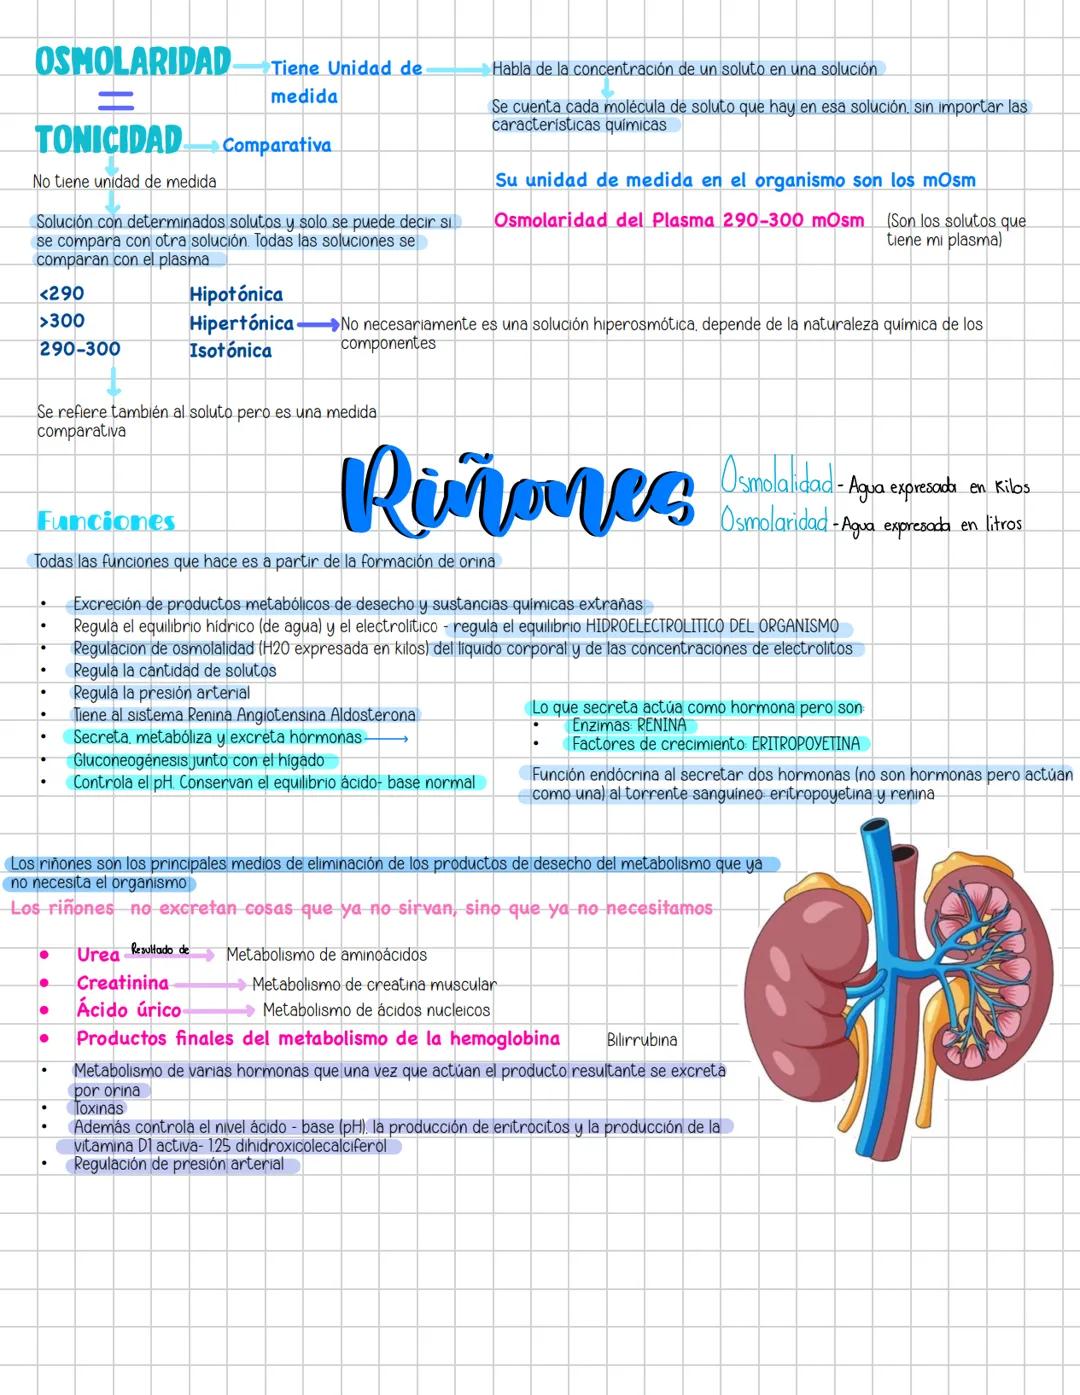 OSMOLARIDAD
Tiene Unidad de
medida
Habla de la concentración de un soluto en una solución
Se cuenta cada molécula de soluto que hay en esa solución, sin importar las
características químicas
=
TONICIDAD
Comparativa
No tiene unidad de medida
Su unidad de medida en el organismo son los mOsm
Solución con determinados solutos y solo se puede decir si
se compara con otra solución. Todas las soluciones se
comparan con el plasma
Osmolaridad del Plasma 290-300 mOsm
(Son los solutos que
tiene mi plasma)
<290 Hipotónica
>300 Hipertónica
No necesariamente es una solución hiperosmótica, depende de la naturaleza química de los
componentes
290-300 Isotónica
Se refiere también al soluto pero es una medida
comparativa
Riñones
Osmolalidad - Agua expresada en Kilos
Osmolaridad - Agua expresada en litros
Funciones
Todas las funciones que hace es a partir de la formación de orina
• Excreción de productos metabólicos de desecho y sustancias químicas extrañas
• Regula el equilibrio hídrico (de agua) y el electrolítico - regula el equilibrio HIDROELECTROLITICO DEL ORGANISMO
• Regulacion de osmolalidad (H20 expresada en kilos) del líquido corporal y de las concentraciones de electrolitos
• Regula la cantidad de solutos
• Regula la presión arterial
• Tiene al sistema Renina Angiotensina Aldosterona
• Secreta, metabóliza y excreta hormonas
• Gluconeogénesis junto con el hígado
• Controla el pH. Conservan el equilibrio ácido- base normal
Lo que secreta actúa como hormona pero son:
• Enzimas: RENINA
• Factores de crecimiento: ERITROPOYETINA
Función endócrina al secretar dos hormonas (no son hormonas pero actúan
como una) al torrente sanguíneo: eritropoyetina y renina
Los riñones son los principales medios de eliminación de los productos de desecho del metabolismo que ya
no necesita el organismo
Los riñones no excretan cosas que ya no sirvan, sino que ya no necesitamos
• Urea Resultado de Metabolismo de aminoácidos
• Creatinina Metabolismo de creatina muscular
• Ácido úrico Metabolismo de ácidos nucleicos
• Productos finales del metabolismo de la hemoglobina Bilirrubina
• Metabolismo de varias hormonas que una vez que actúan el producto resultante se excreta
por orina
• Toxinas
• Además controla el nivel ácido - base (pH), la producción de eritrocitos y la producción de la
vitamina D1 activa- 1.25 dihidroxicolecalciferol
• Regulación de presión arterial